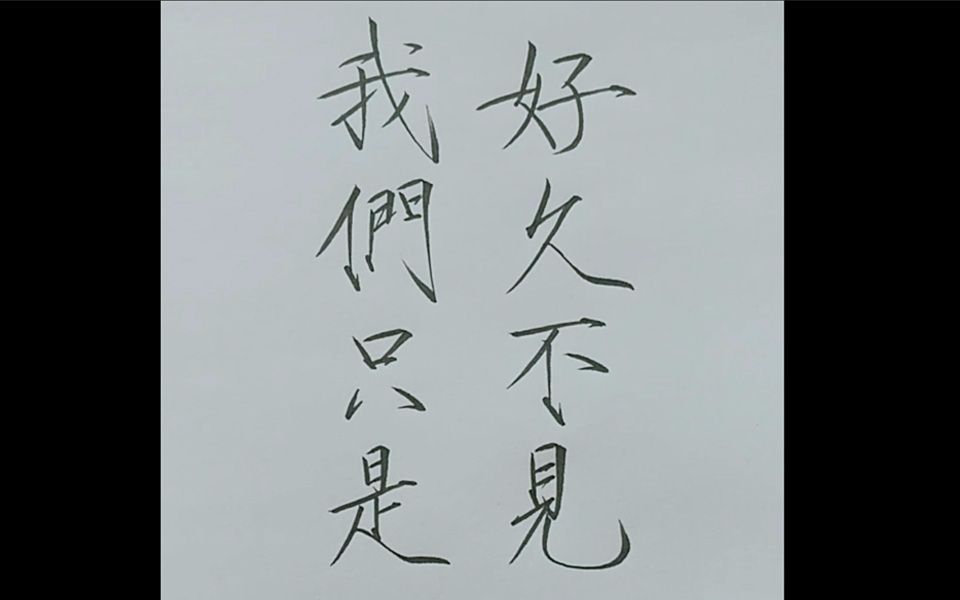 好久不見
我們只是